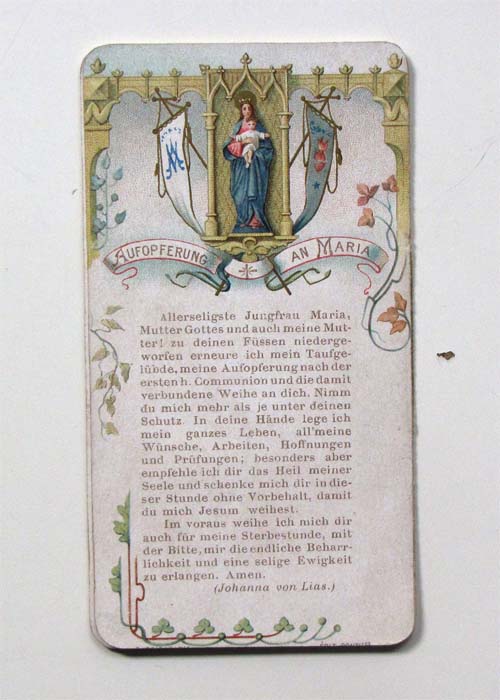 AUFOPFERUNG AN MARIA
Allerseligste Jungfrau Maria,
Mutter Gottes und auch meine Mut-
ter! zu deinen Füssen niederge-
worfen erneure ich mein Taufge-
lübde, meine Aufopferung nach der
ersten h. Communion und die damit
verbundene Weihe an dich. Nimm
du mich mehr als je unter deinen
Schutz. In deine Hände lege ich
mein ganzes Leben, all'meine
Wünsche, Arbeiten, Hoffnungen
und Prüfungen; besonders aber
empfehle ich dir das Heil meiner
Seele und schenke mich dir in die-
ser Stunde ohne Vorbehalt, damit
du mich Jesum weihest.
Im voraus weihe ich mich dir
auch für meine Sterbestunde, mit
der Bitte, mir die endliche Beharr-
lichkeit und eine selige Ewigkeit
zu erlangen. Amen.
(Johanna von Lias.)